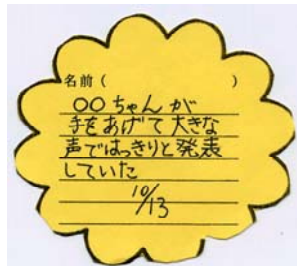 名前(　　　　　)
〇〇ちゃんが
手をあげて大きな
声ではっきりと発表
していた
10/13